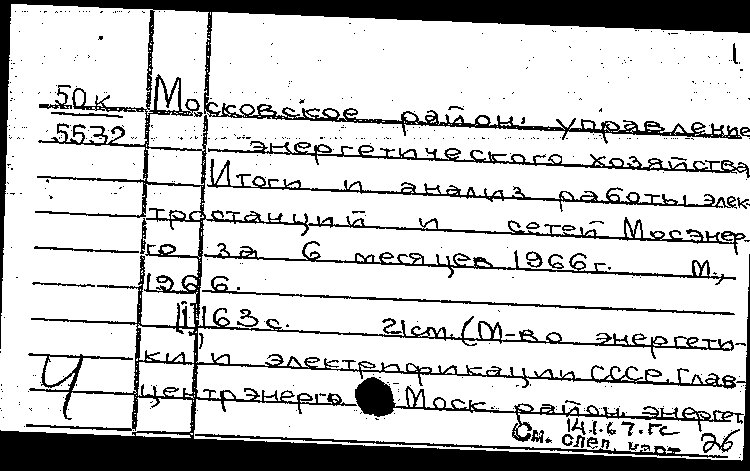 1
50к
5532
Московское район. управление
энергетического хозяйства
Итоги и анализ работы элек-
тростанций и сетей Мосэнер-
го за 6 месяцев 1966 г. М.,
1966.
[1] 163 с. 21 см. (М-во энергети-
ки и электрификации СССР. Глав-
центрэнерго Моск. район. энергет.
Ч
14.1.67.
См. след. карт
26